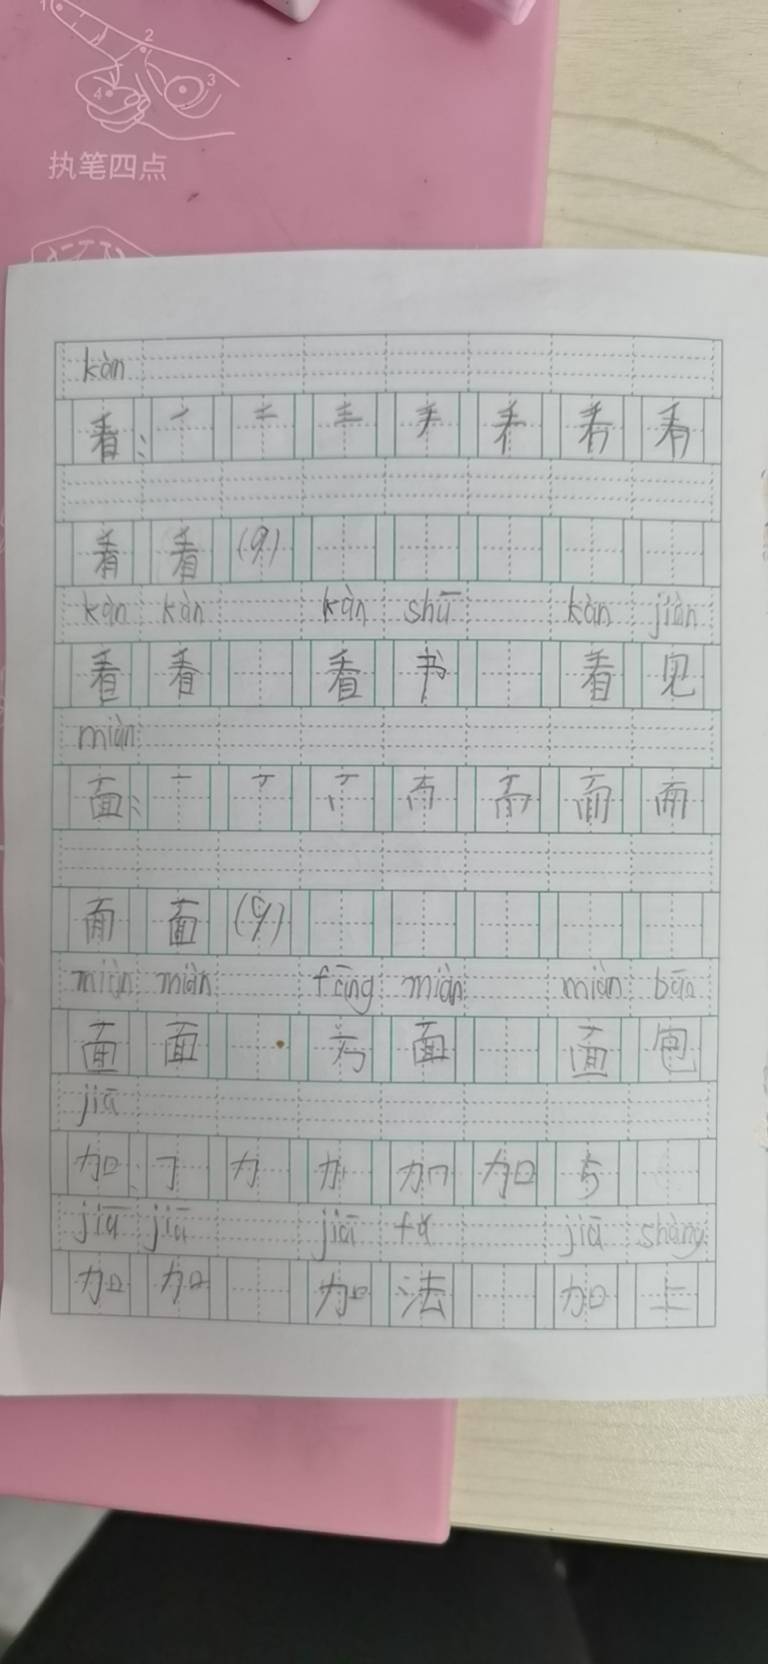 1 2 3 4
执笔四点
kàn
看:
看 看 (9)
kàn kàn kàn shū kàn jiàn
看 看 看 书 看 见
miàn
面:
面 (9)
miàn miàn fāng miàn miàn bāo
面 面 方 面 面 包
jiā
加: 力 加 5
jiā jiā jiā fǎ jiā shàng
加 加 加 法 加 上